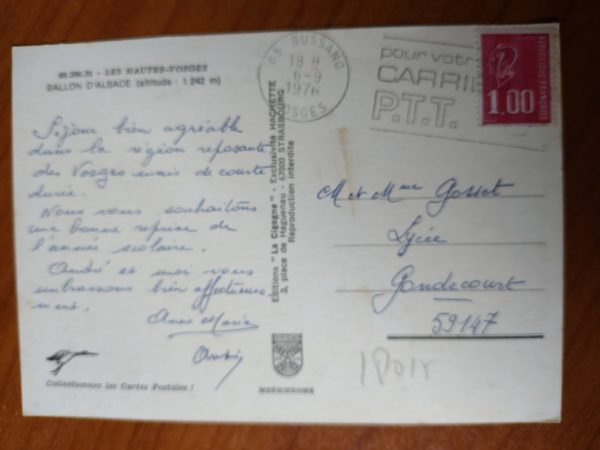 68.390.20 - LES HAUTES-VOSGES
BALLON D'ALSACE (altitude : 1 242 m)
Séjour bien agréable
dans la région reposante
des Vosges mais de courte
durée.
Nous vous souhaitons
une bonne reprise de
l'année scolaire.
André et moi vous
embrassons bien affectueuse
ment.
Anne Marie
André
Collectionnez les Cartes Postales !
Editions "La Cigogne" - Exclusivité HACHETTE
3, place de Haguenau - 67000 STRASBOURG
Reproduction interdite
MEXICHROME
88 BUSSANG
18 H
6-9
1976
VOSGES
pour votre
CARRIE
P.T.T.
1,00
REPUBLIQUE FRANÇAISE
M et Mme Gosset
Lycée
Gondecourt
59147